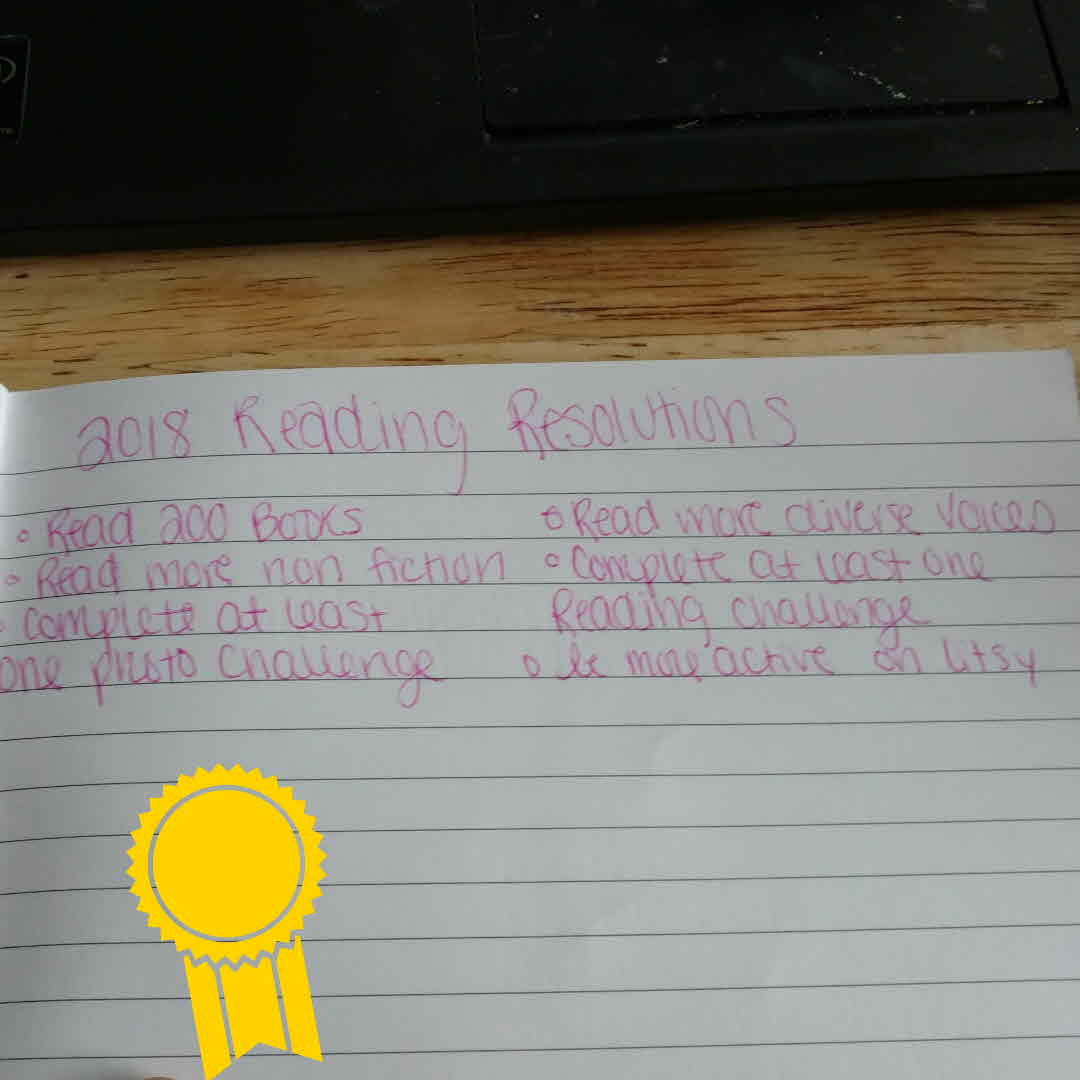 2018 Reading Resolutions
• Read 200 Books
• Read more non fiction
• complete at least
one photo challenge
• Read more diverse voices
• Complete at least one
Reading challenge
• be more active on litsy